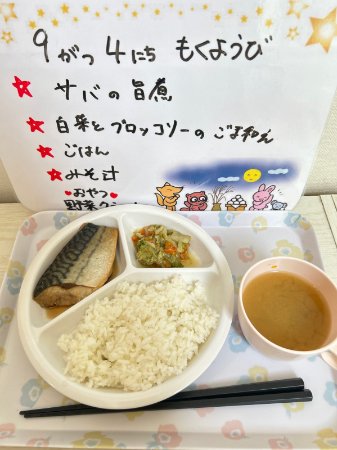 9がつ4にち もくようび
サバの旨煮
白菜とブロッコリーのごま和え
ごはん
みそ汁
おやつ
野菜